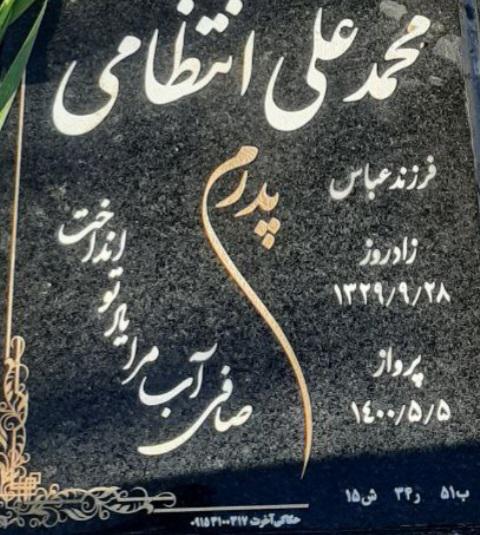 محمد علی انتظامی
فرزند عباس
پدرم
زادروز
۱۳۲۹/۹/۲۸
پرواز
۱۴۰۰/۵/۵
صافی آب مرا یاد تو انداخت
ب۵۱ ر۳۴ ش۱۵
حکاکی آخرت ۰۹۱۵۳۱۰۰۳۱۷